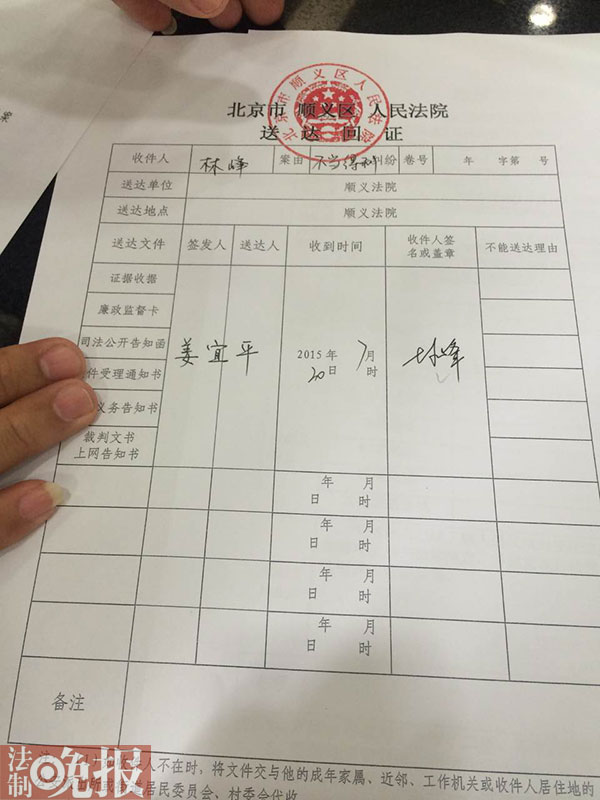 北京市 顺义区 人民法院
送达回证
北京市顺义区人民法院
收件人 林峰 案由 不当得利纠纷 卷号 年 字第 号
送达单位 顺义法院
送达地点 顺义法院
送达文件 签发人 送达人 收到时间 收件人签名或盖章 不能送达理由
证据收据
廉政监督卡
司法公开告知函
件受理通知书
义务告知书
裁判文书
上网告知书
姜宜平
2015年 7月
20日 时
林峰
年 月
日 时
年 月
日 时
年 月
日 时
年 月
日 时
备注
收件人不在时，将文件交与他的成年家属、近邻、工作机关或收件人居住地的
居民委员会、村委会代收
法制晚报